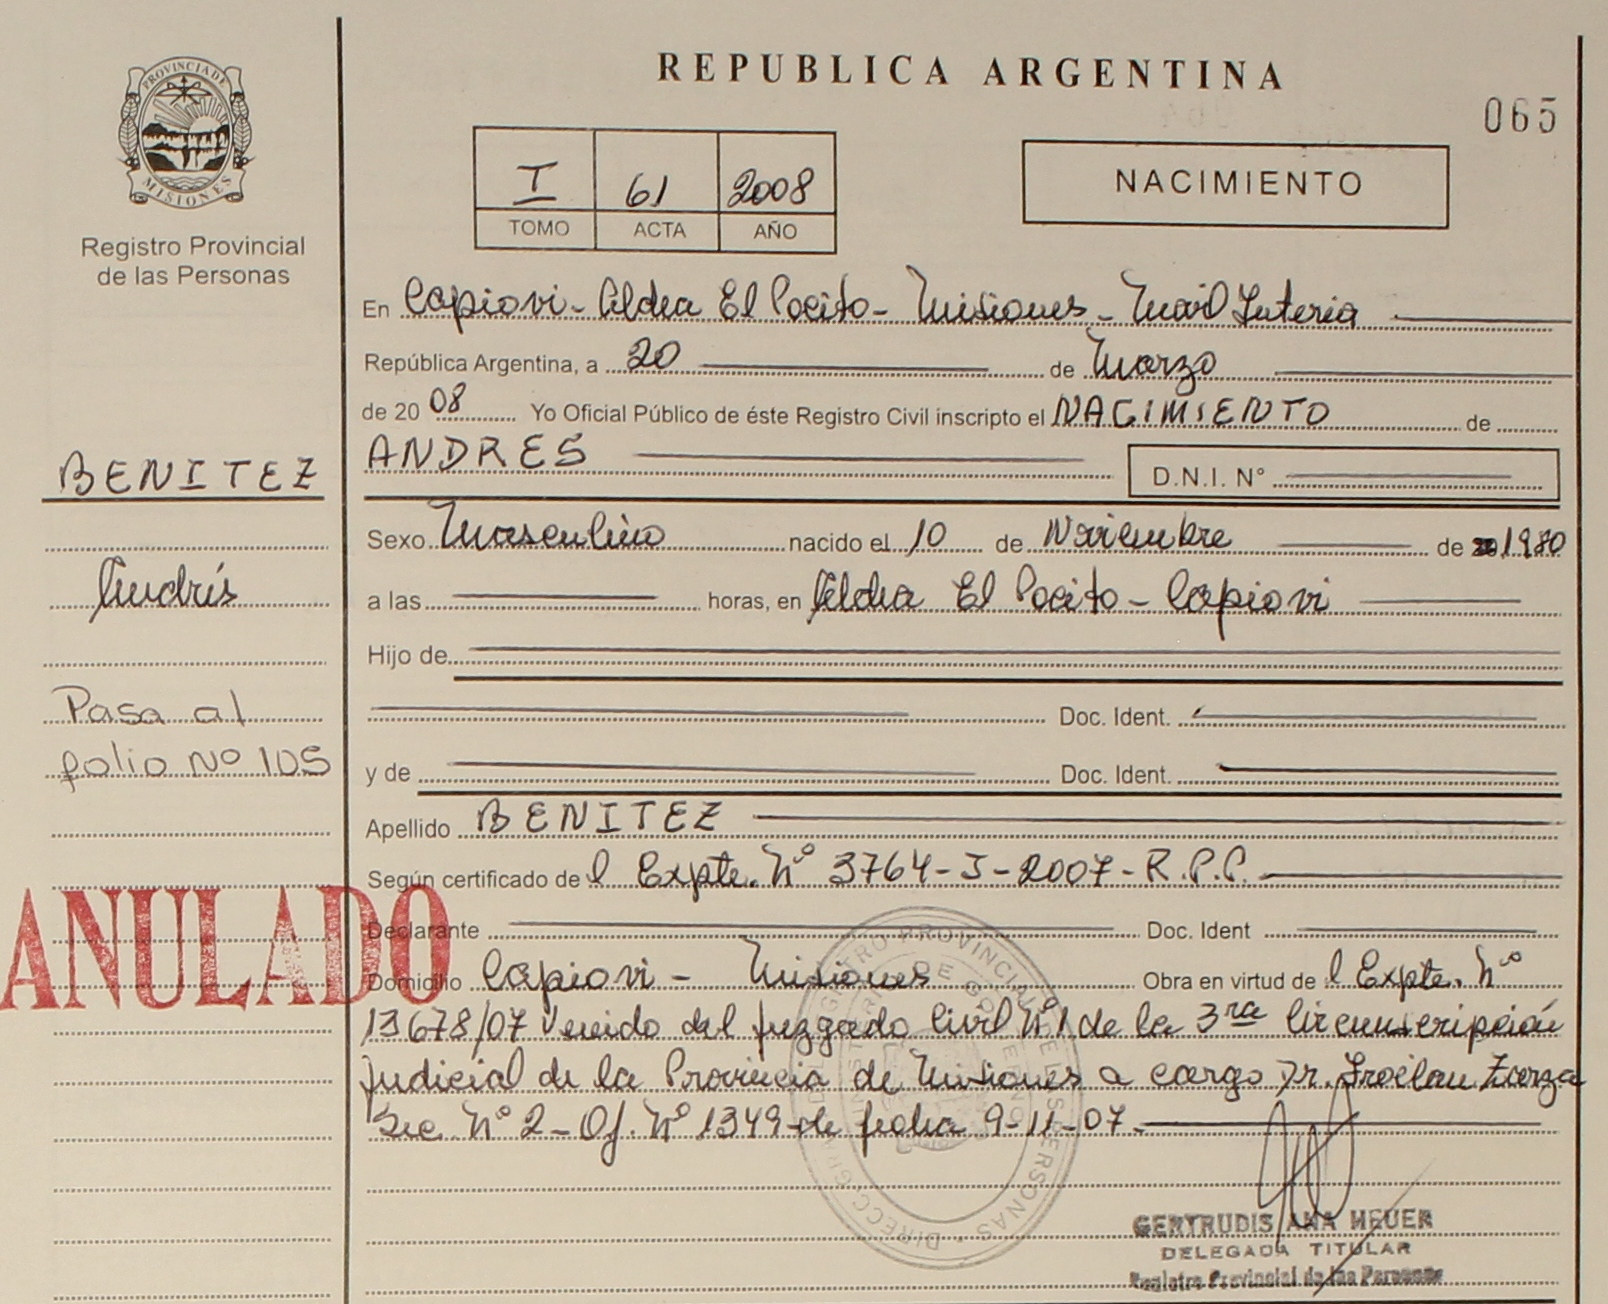 REPUBLICA ARGENTINA
065
PROVINCIA DE
MISIONES
Registro Provincial
de las Personas
I 61 2008
TOMO ACTA AÑO
NACIMIENTO
En Capiovi - Aldea El Pocito - Misiones -
República Argentina, a 20 de Marzo
de 2008 Yo Oficial Público de éste Registro Civil inscripto el NACIMIENTO de
ANDRES D.N.I. N°
BENITEZ
Sexo Masculino nacido el 10 de Noviembre de 1980
Andrés
a las horas, en Aldea El Pocito - Capiovi
Hijo de
Pasa al
Doc. Ident.
folio Nº 105
y de Doc. Ident.
Apellido BENITEZ
Según certificado de l Expte. Nº 3764-J-2007-R.P.P.
ANULADO
Declarante Doc. Ident
Domicilio Capiovi - Misiones Obra en virtud de l Expte. Nº
13678/07 venido del Juzgado Civil Nº 1 de la 3ra Circunscripción
Judicial de la Provincia de Misiones a cargo Dr. Froilan Zarza
Sec. Nº 2 - Of. Nº 1349 de fecha 9-11-07.
GERTRUDIS ANA HEUER
DELEGADA TITULAR
Registro Provincial de las Personas